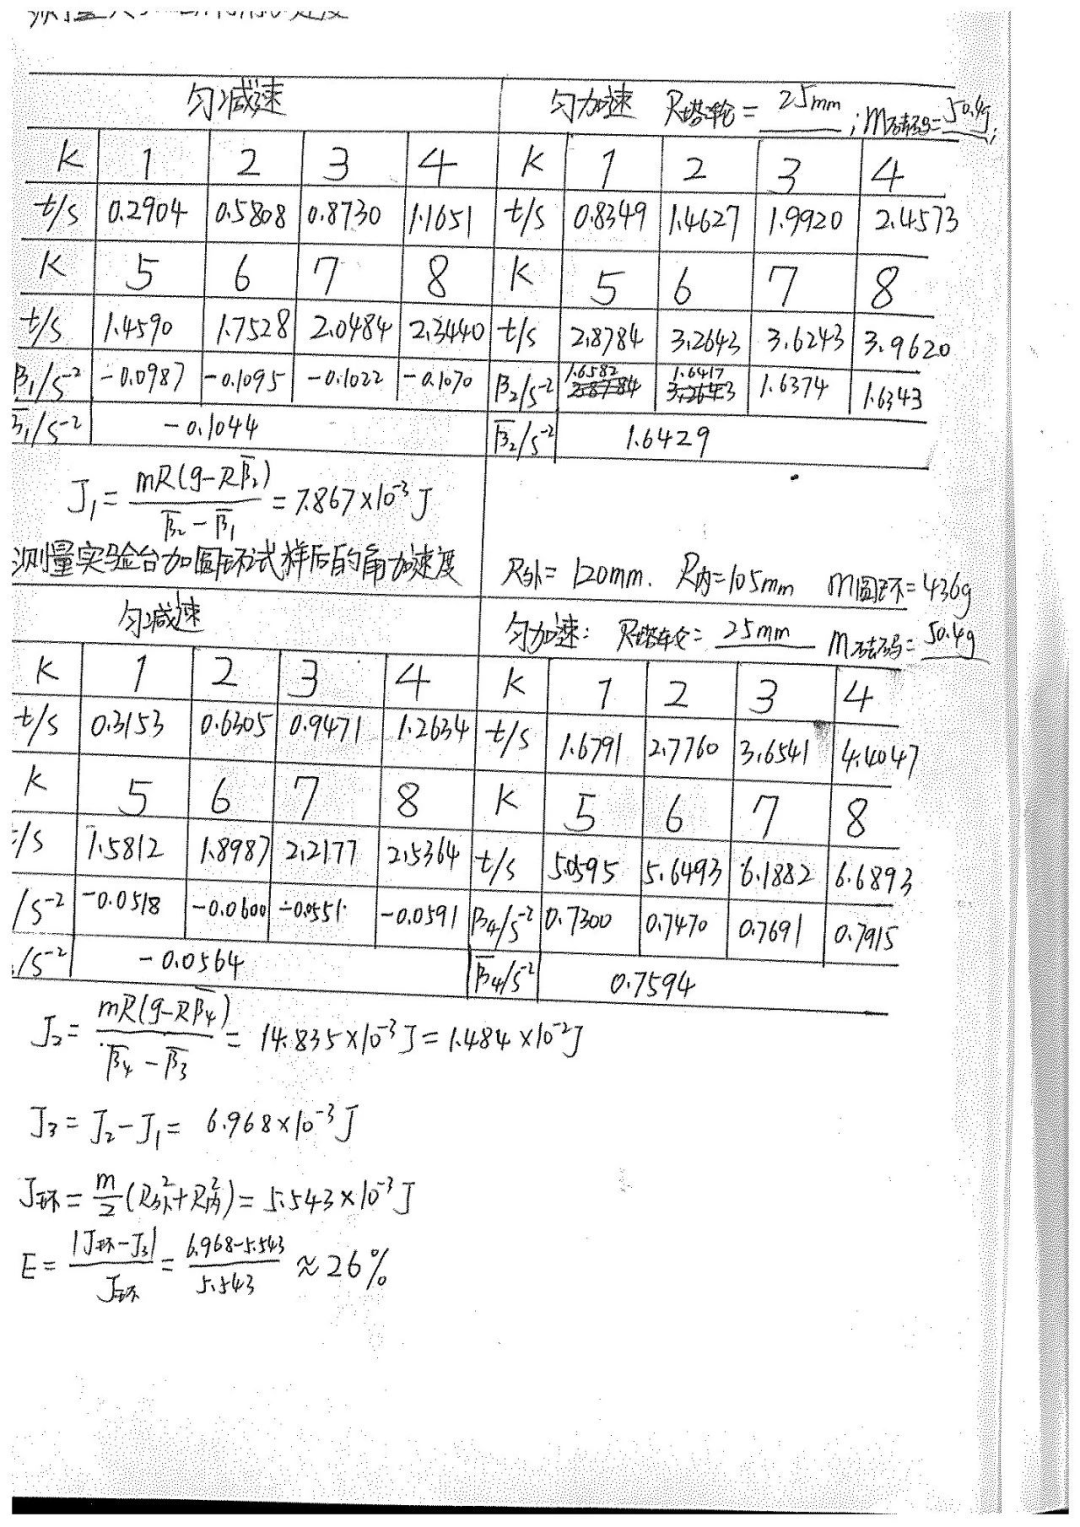 匀减速 匀加速 R塔轮= 25mm ; m砝码=50.4g;
K 1 2 3 4 K 1 2 3 4
t/s 0.2904 0.5808 0.8730 1.1651 t/s 0.8349 1.4627 1.9920 2.4573
K 5 6 7 8 K 5 6 7 8
t/s 1.4590 1.7528 2.0484 2.3440 t/s 2.8784 3.2643 3.6243 3.9620
β₁/s⁻² -0.0987 -0.1095 -0.1022 -0.1070 β₂/s⁻² 1.6582 1.6417 1.6374 1.6343
β̄₁/s⁻² -0.1044 β̄₂/s⁻² 1.6429
J₁= mR(g-Rβ̄₂)/(β̄₂-β̄₁) = 7.867×10⁻³J
测量实验台加圆环试样后的角加速度 R外=120mm. R内=105mm m圆环=436g
匀减速 匀加速: R塔轮: 25mm m砝码= 50.4g
K 1 2 3 4 K 1 2 3 4
t/s 0.3153 0.6305 0.9471 1.2634 t/s 1.6791 2.7760 3.6541 4.4047
K 5 6 7 8 K 5 6 7 8
/s 1.5812 1.8987 2.2177 2.5364 t/s 5.0595 5.6493 6.1882 6.6893
/s⁻² -0.0518 -0.0600 -0.0551 -0.0591 β₄/s⁻² 0.7300 0.7470 0.7691 0.7915
/s⁻² -0.0564 β̄₄/s⁻² 0.7594
J₂= mR(g-Rβ̄₄)/(β̄₄-β̄₃) = 14.835×10⁻³J=1.484×10⁻²J
J₃=J₂-J₁= 6.968×10⁻³J
J环= m/2(R外²+R内²)=5.543×10⁻³J
E= |J环-J₃|/J环 = (6.968-5.543)/5.543 ≈26%